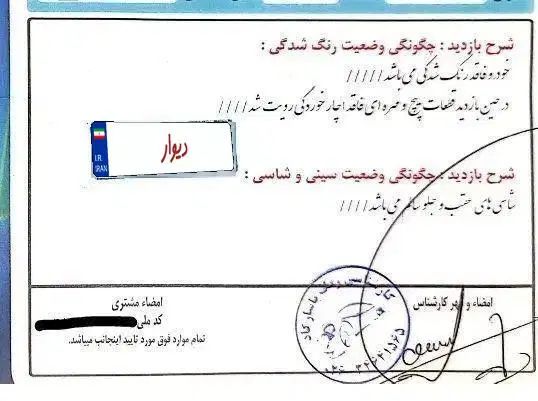 شرح بازدید : چگونگی وضعیت رنگ شدگی :
خودرو فاقد رنگ شدگی می باشد /////
در حین بازدید قطعات پیچ و مهره ای فاقد اچار خوردگی رویت شد ////
I.R.
IRAN
دیوار
شرح بازدید : چگونگی وضعیت سینی و شاسی :
شاسی های عقب و جلو سالم می باشد ////
امضاء و مهر کارشناس
امضاء مشتری
کد ملی
تمام موارد فوق مورد تایید اینجانب میباشد.